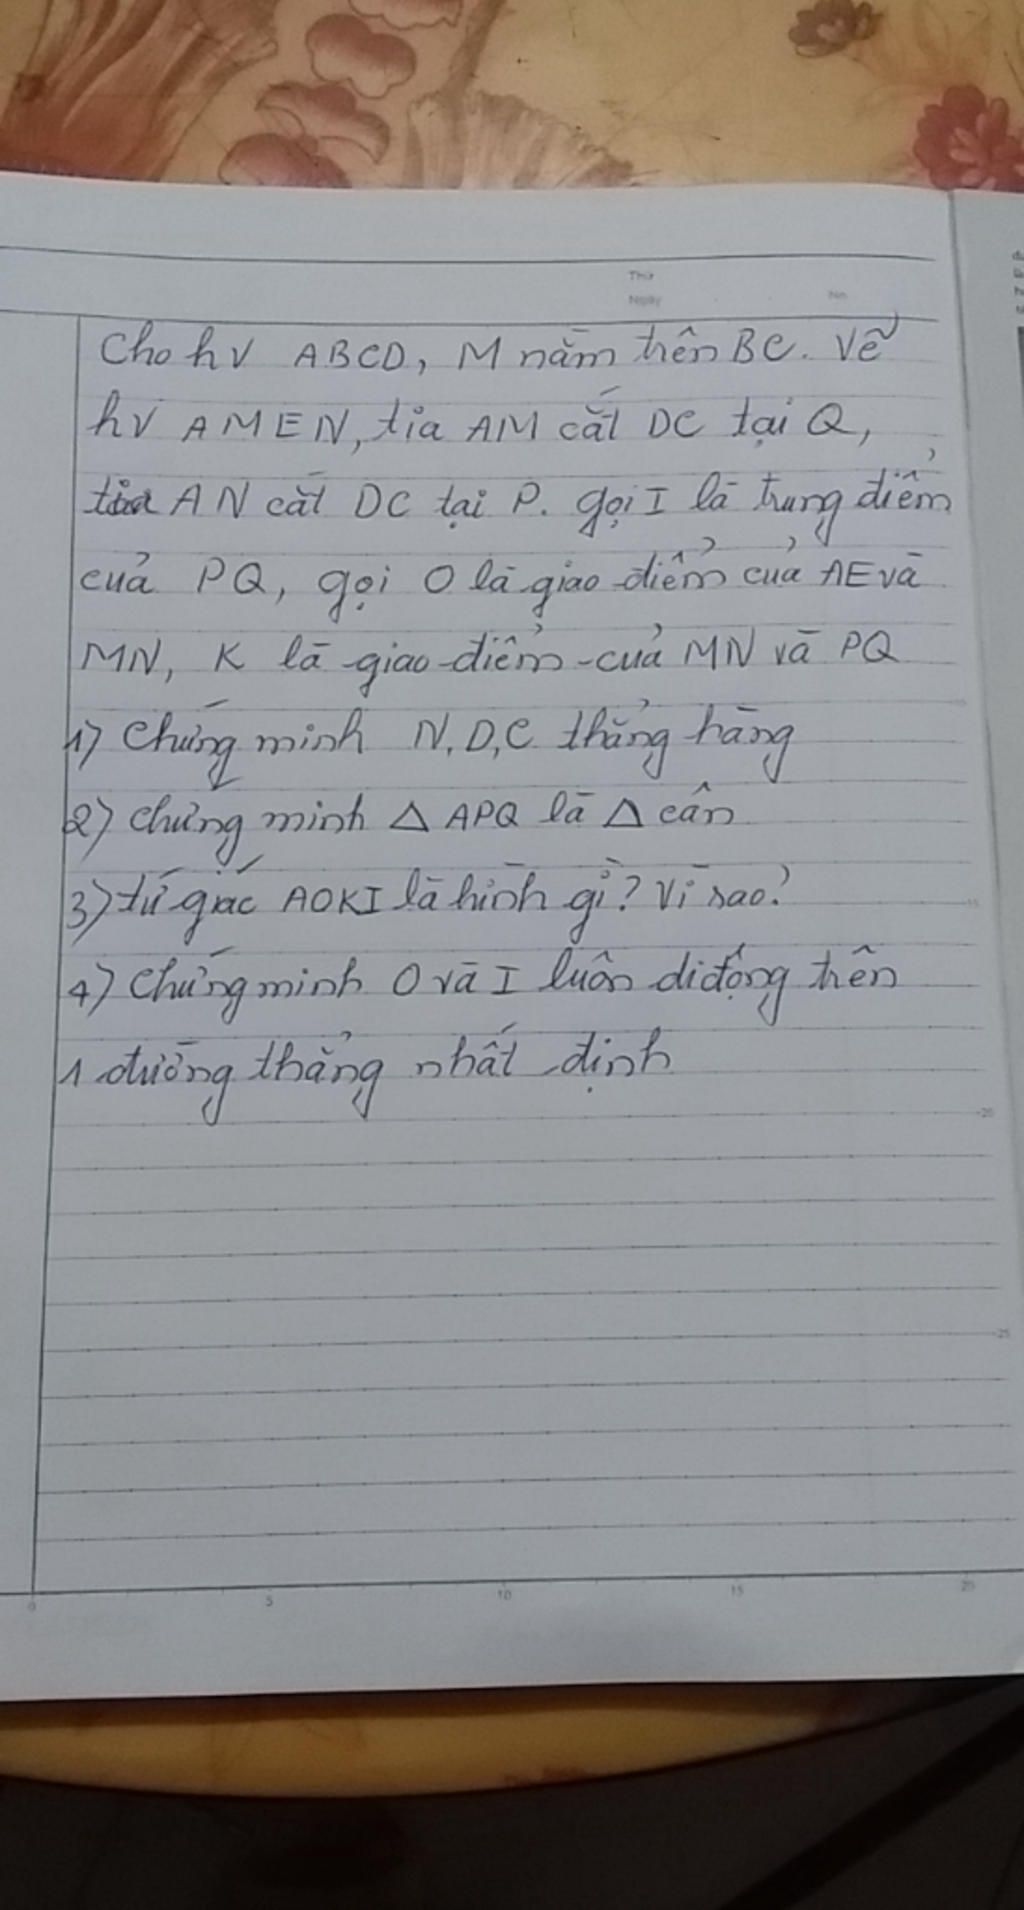 Thứ
Ngày No
Cho hv ABCD, M nằm trên BC. Vẽ
hv AMEN, tia AM cắt DC tại Q,
tia AN cắt DC tại P. gọi I là trung điểm
của PQ, gọi O là giao điểm của AE và
MN, K là giao điểm của MN và PQ
1) Chứng minh N, D, C thẳng hàng
2) chứng minh △ APQ là △ cân
3) tứ giác AOKI là hình gì? Vì sao?
4) Chứng minh O và I luôn di động trên
1 đường thẳng nhất định
15
20
25
0 5 10 15 20